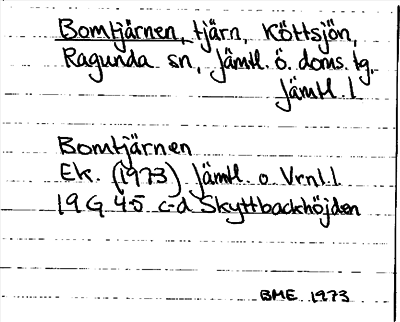 Bomtjärnen, tjärn, Köttsjön,
Ragunda sn, Jämtl. ö. doms. tg.
Jämtl. l
Bomtjärnen
Ek. (1973) Jämtl. o Vrnl. l
19 G 4-5 c-d Skyttbackhöjden
BME 1973